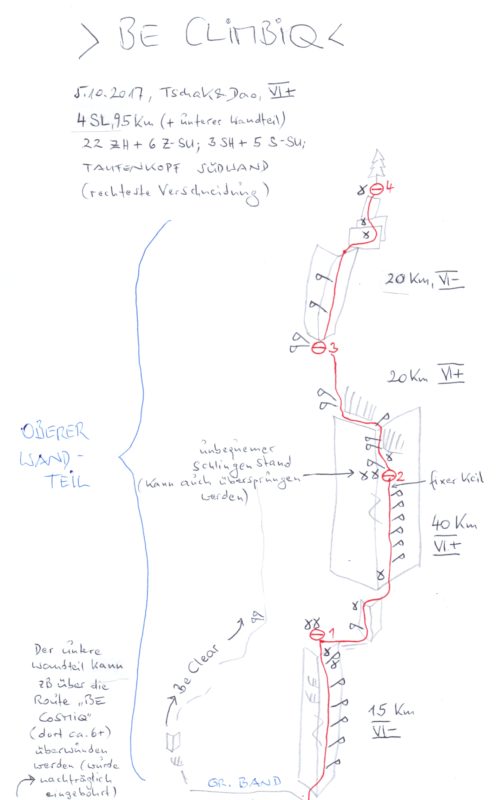 > BE CLIMBIQ <
5.10.2017, Tschak & Dao, VI+
4 SL, 95 Km (+ unterer Wandteil)
22 ZH + 6 Z-SU; 3 SH + 5 S-SU;
TAUFENKOPF SÜDWAND
(rechteste Verschneidung)
4
20 Km, VI-
3
20 Km VI+
OBERER
WAND-
TEIL
unbequemer
Schlingenstand
(Kann auch übersprungen
werden)
2
fixer Keil
40 Km
VI+
1
Be Clear
Der untere
Wandteil kann
ZB über die
Route „BE
COSMIQ"
(dort ca. 6+)
überwunden
werden (wurde
nachträglich
eingebohrt)
15 Km
VI-
GR. BAND